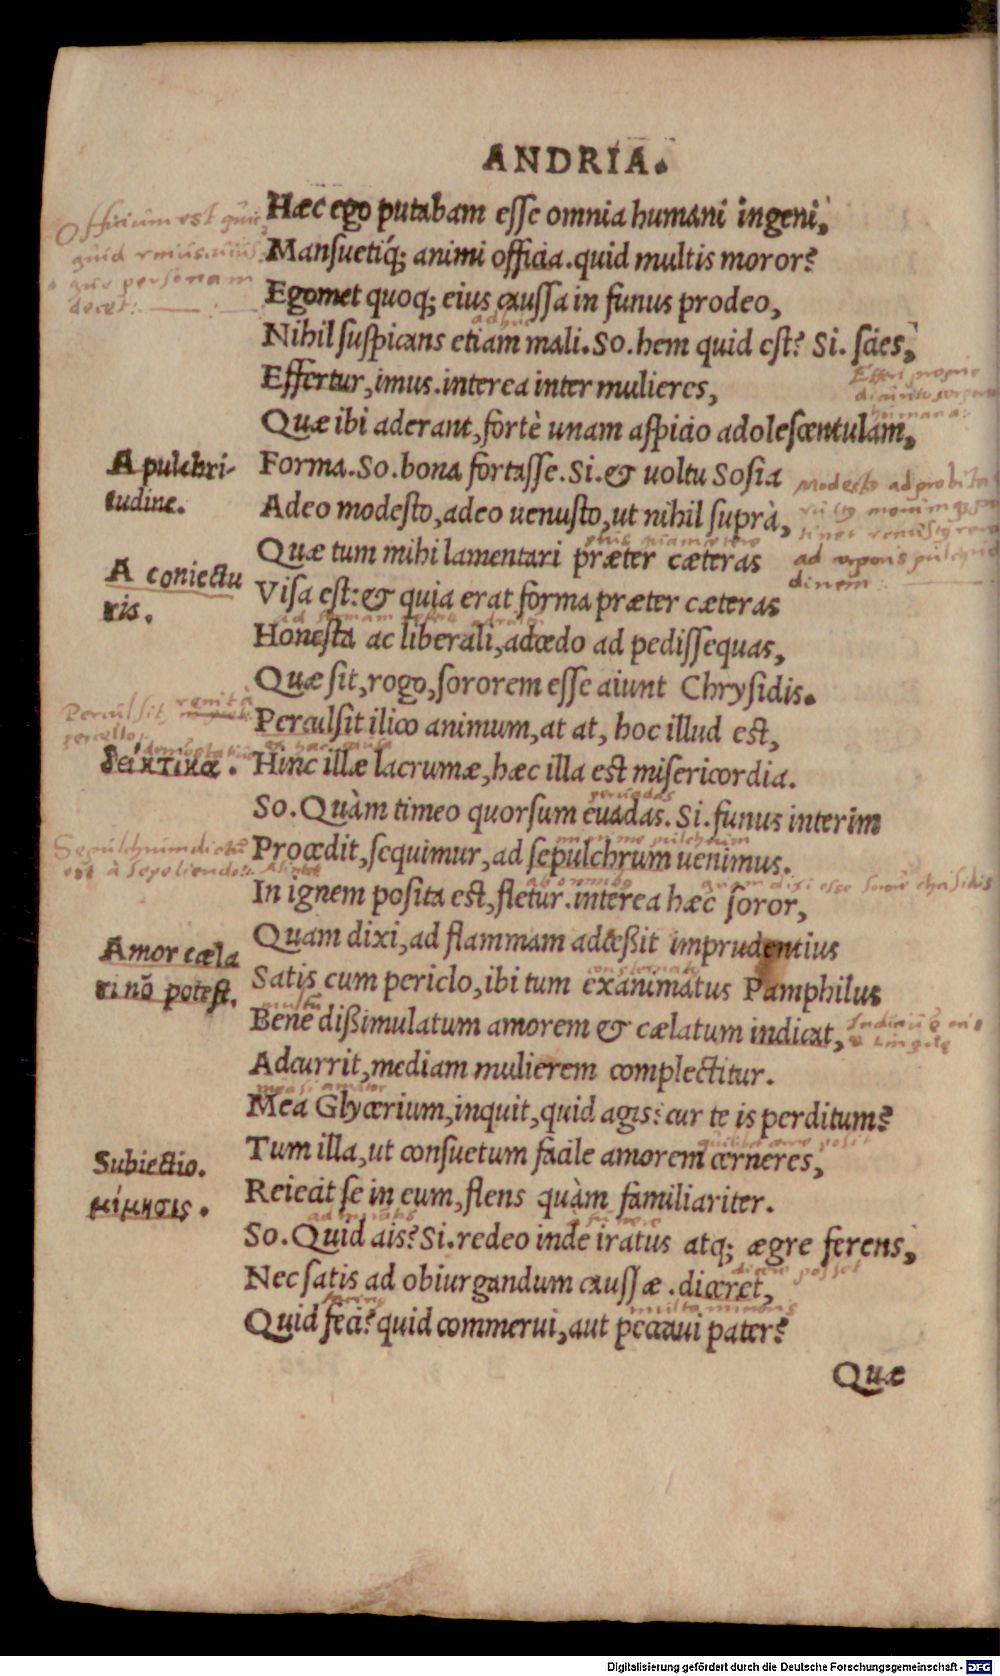 ANDRIA.
Hæc ego putabam esse omnia humani ingeni,
Mansuetiq́; animi officia. quid multis moror?
Egomet quoq; eius caussa in funus prodeo,
Nihil suspicans etiam mali. So. hem quid est? Si. scies,
Effertur, imus. interea inter mulieres,
Quæ ibi aderant, fortè unam aspicio adolescentulam,
Forma. So. bona fortasse. Si. & uoltu Sosia
Adeo modesto, adeo uenusto, ut nihil suprà,
Quæ tum mihi lamentari præter cæteras
Visa est: & quia erat forma præter cæteras
Honesta ac liberali, accedo ad pedissequas,
Quæ sit, rogo, sororem esse aiunt Chrysidis.
Perculsit ilico animum, at at, hoc illud est,
Hinc illæ lacrumæ, hæc illa est misericordia.
So. Quàm timeo quorsum euadas. Si. funus interim
Procedit, sequimur, ad sepulchrum uenimus.
In ignem posita est, fletur. interea hæc soror,
Quam dixi, ad flammam accessit imprudentius
Satis cum periclo, ibi tum exanimatus Pamphilus
Bene dissimulatum amorem & cælatum indicat,
Adcurrit, mediam mulierem complectitur.
Mea Glycerium, inquit, quid agis? cur te is perditum?
Tum illa, ut consuetum facile amorem cerneres,
Reiecit se in eum, flens quàm familiariter.
So. Quid ais? Si. redeo inde iratus atq; ægre ferens,
Nec satis ad obiurgandum caussæ. diceret,
Quid feci? quid commerui, aut peccaui pater?
Quæ
A pulchri-
tudine.
A coniectu
ris.
δεικτικῶς.
Amor cæla
ri nō potest.
Subiectio.
μίμησις.
Officium est
personam
decet:
adhuc
Efferi proprie
humana:
Modesto ad probita
ad corporis pulchri
dinem
Perculsit
percello:
euadas
Sepulchrum dictū
est à sepeliendo:
quam dixi esse
multū
Indiciū
diceret posset